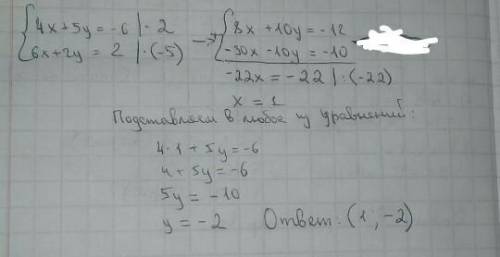 {4x+5y=-6 |·2
{6x+2y=2 |·(-5) → {8x+10y=-12
{-30x-10y=-10
-22x=-22 |:(-22)
x=1
Подставляем в любое из уравнений:
4·1+5y=-6
4+5y=-6
5y=-10
y=-2 Ответ: (1,-2)